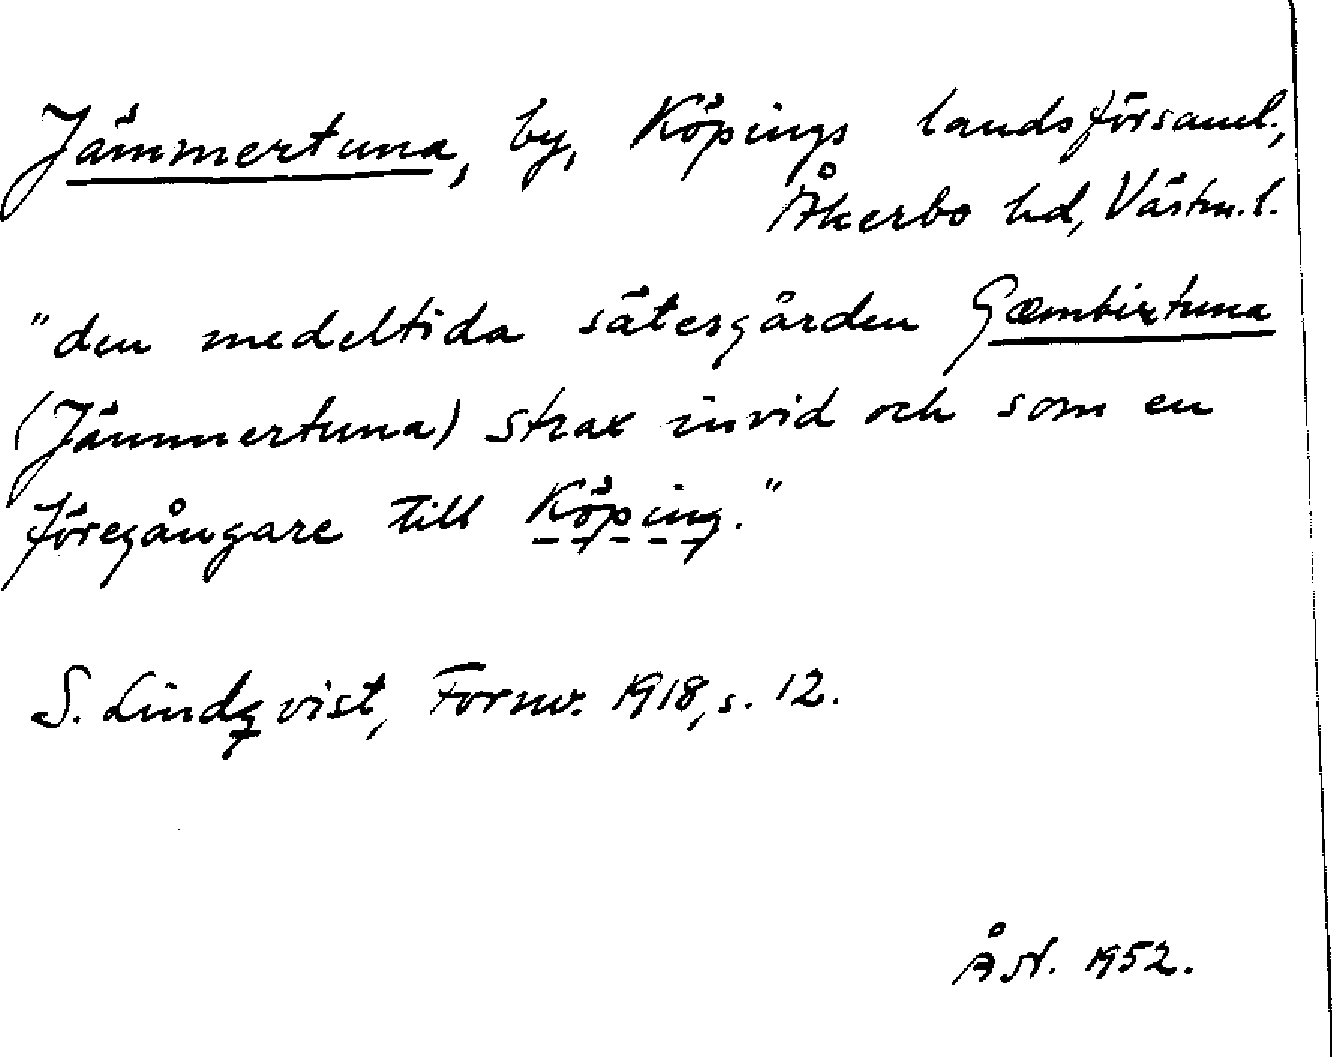 Jämmertuna, by, Köpings landsförsaml.,
Åkerbo hd, Västm.l.
"den medeltida sätesgården Gæmbirtuna
(Jämmertuna) strax invid och som en
föregångare till Köping."
S. Lindqvist, Fornv. 1918, s. 12.
ÅN. 1952.